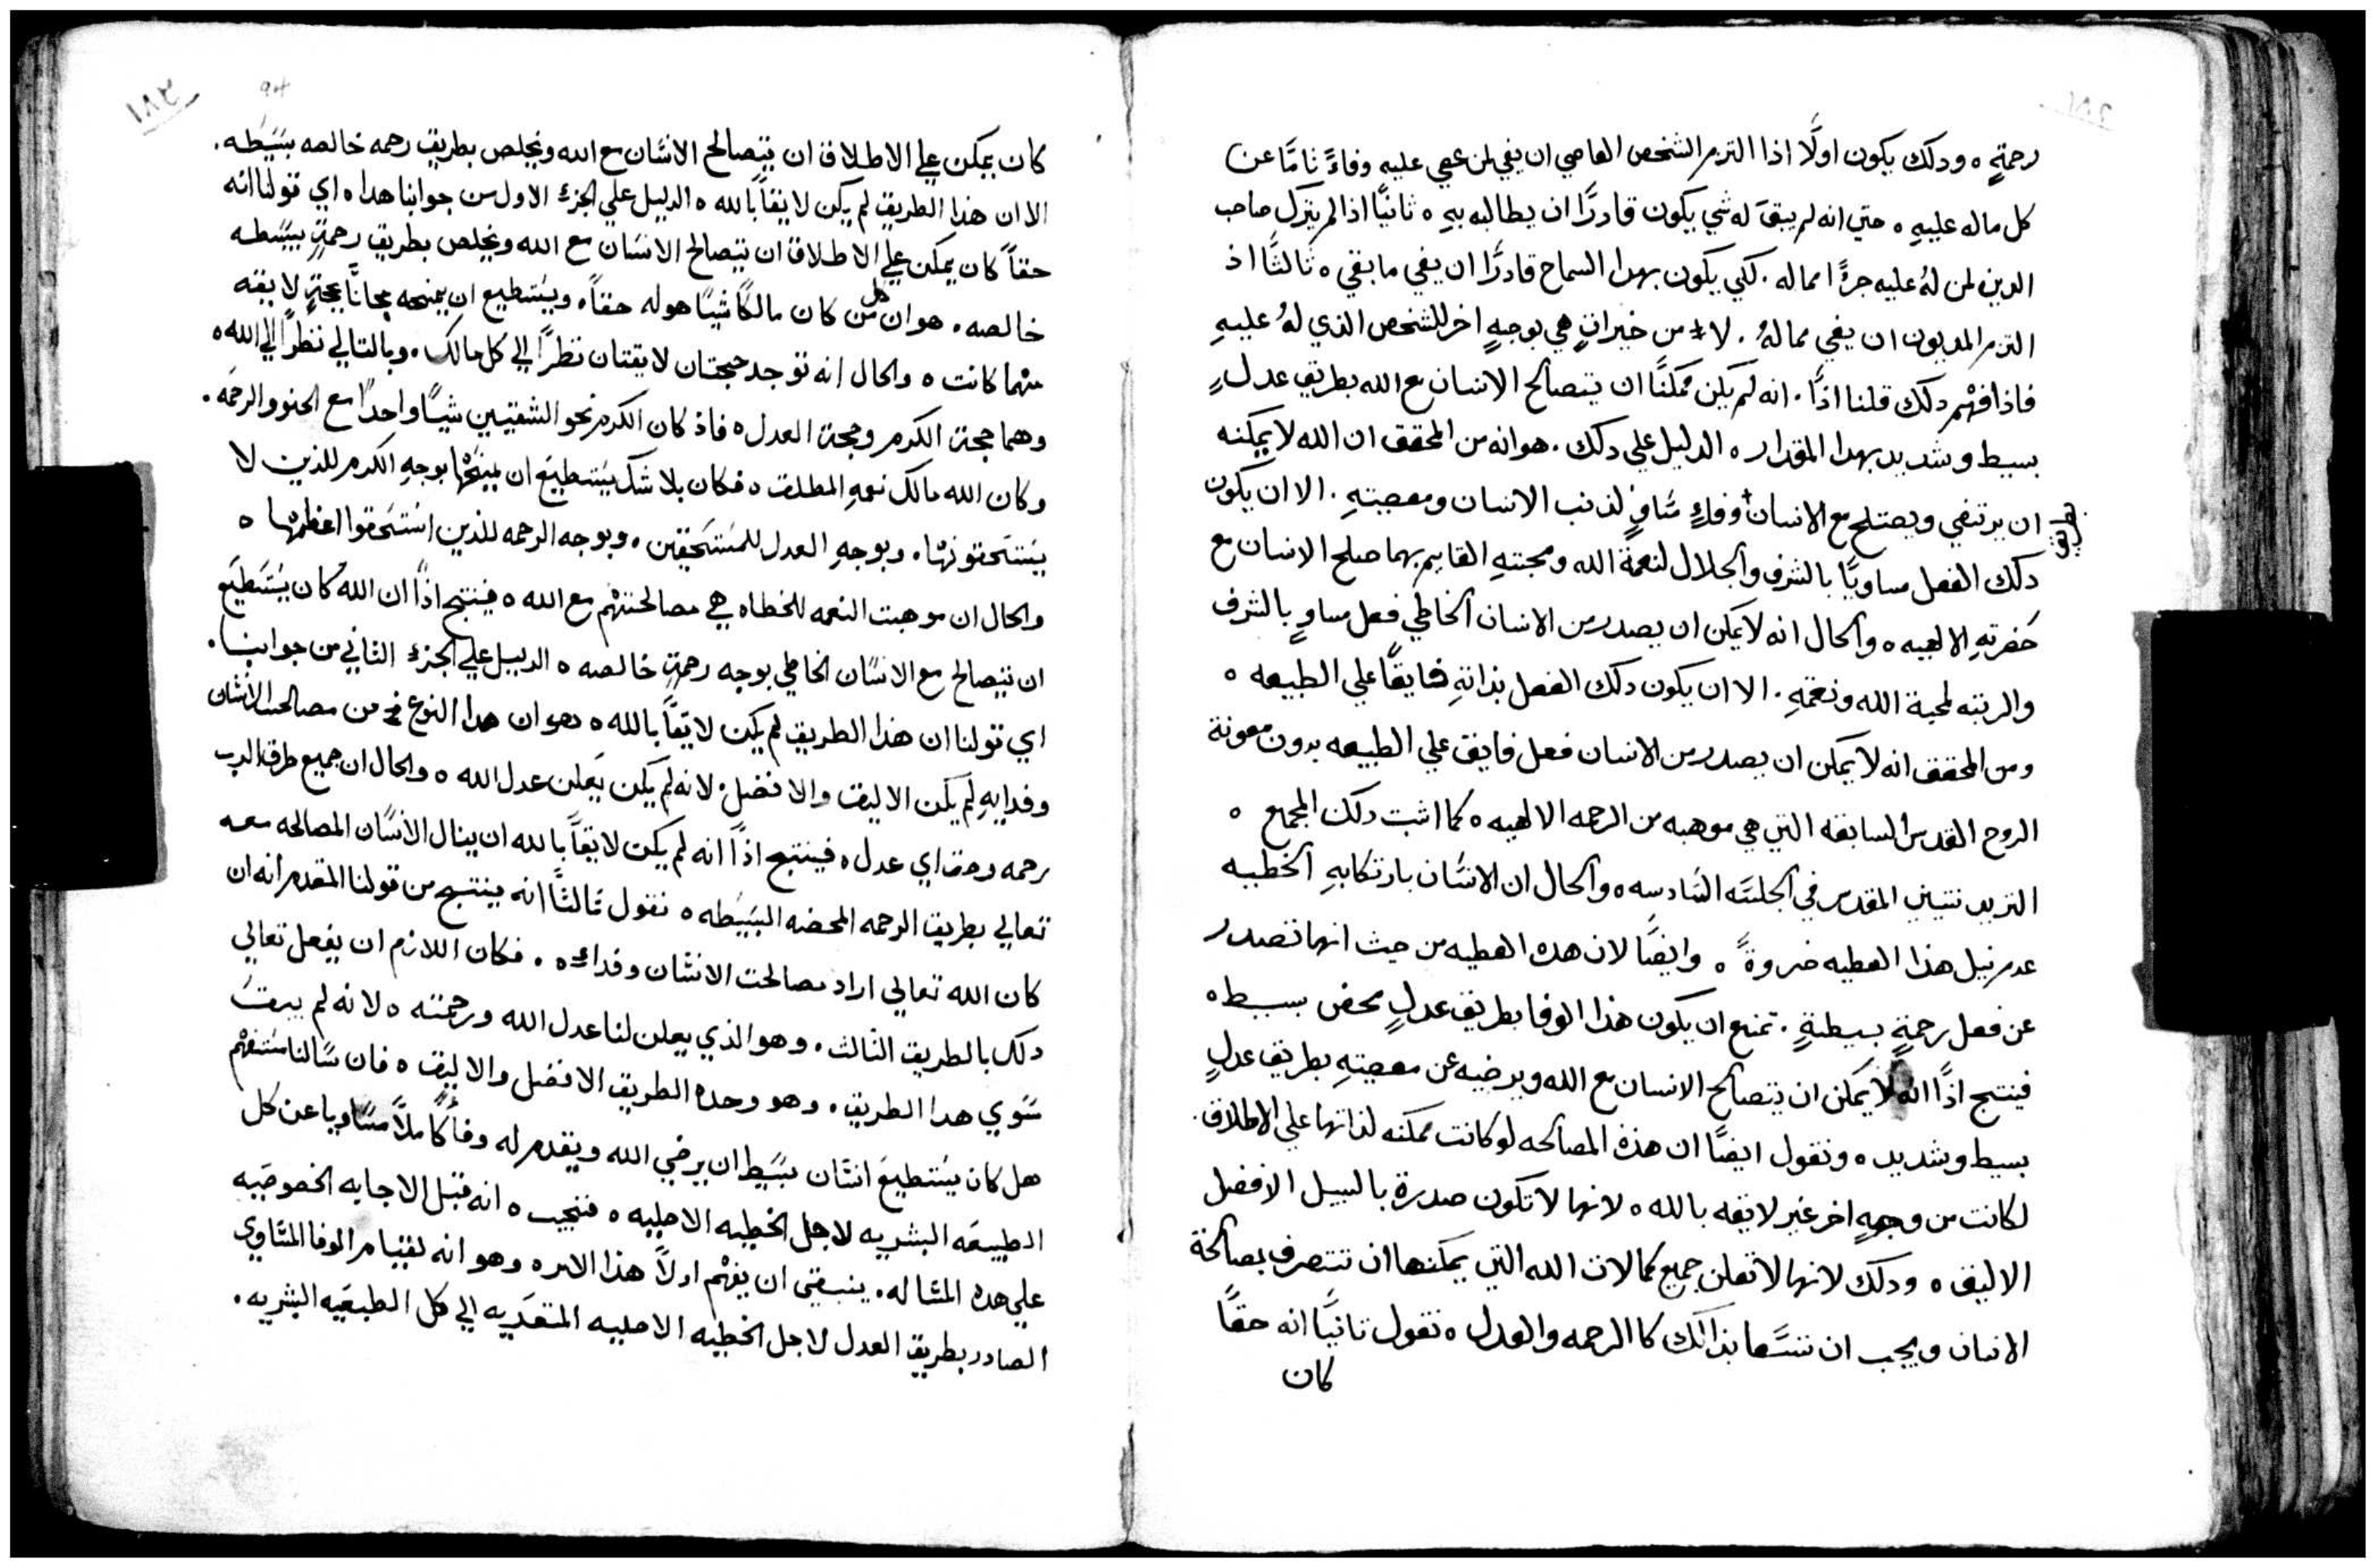 رحمةٍ ه ودلك يكون اولًا اذا التزم الشخص العاصي ان يفي لمن عصي عليهِ وفاءً تامًا عن
كل ماله عليهِ ه حتي انه لم يبقَ له شي يكون قادرًا ان يطالبه بهِ ه ثانيًا اذا لم يترك صاحب
الدين لمن لهُ عليه جزءًا مماله . لكي يكون بهدا السماح قادرًا ان يفي ما بقي ه ثالثًا اذ
التزم المديون ان يفي ممالهُ . لا من خيراتٍ هي بوجهٍ اخر للشخص الذي لهُ عليهِ
فاذا فهم دلك قلنا اذًا . انه لم يكن ممكنًا ان يتصالح الانسان مع الله بطريق عدلٍ
بسيط وشديد بهدا المقدار ه الدليل علي دلك . هو انه من المحقق ان الله لا يمكنه
ان يرتضي ويصتلح مع الانسان وفاءٍ مساوٍ لذنب الانسان ومعصيتهِ . الا ان يكون
بطريق
دلك الفعل مساويًا بالشرف والجلال لنعمة الله ومحبتهِ القايم بهما صلح الانسان مع
حضرتهِ الالهيه ه والحال انه لا يمكن ان يصدر من الانسان الخاطي فعل مساوٍ بالشرف
والرتبه لمحبة الله ونعمتهِ . الا ان يكون دلك الفعل بذاتهِ فايقًا علي الطبيعه ه
ومن المحقق انه لا يمكن ان يصدر من الانسان فعل فايق علي الطبيعه بدون معونة
الروح القدس السابقه التي هي موهبه من الرحمه الالهيه ه كما اثبت دلك المجمع ه
التريدنتيني المقدس في الجلسَه السَادسه ه والحال ان الانسَان بارتكابهِ الخطيه
عدم نيل هذا العطيه ضروةً ه وايضًا لان هده العطيه من حيث انها تصدر
عن فعل رحمةٍ بسيطةٍ . تمنع ان يكون هذا الوفا بطريق عدلٍ محض بسيط ه
فينتج اذًا انه لا يمكن ان يتصالح الانسان مع الله ويرضيه عن معصيتهِ بطريق عدلٍ
بسيط وشديد ه ونقول ايضًا ان هذه المصالحه لو كانت ممكنه لذاتها علي الاطلاق .
لكانت من وجهٍ اخر غير لايقه بالله ه لانها لا تكون صدرة بالسبيل الافضل
الاليق ه ودلك لانها لا تعلن جميع كمالات الله التي يمكنها ان تتصرف بصالحة
الانسان ويجب ان تتسَما بذالك كالرحمه والعدل ه نقول ثانيًا انه حقًا
كان
كان يمكن علي الاطلاق ان يتصالح الانسَان مع الله ويخلص بطريق رحمه خالصه بسَيَطه .
الا ان هذا الطريق لم يكن لايقًا بالله ه الدليل علي الجزء الاول من جوابنا هدا ه اي قولنا انه
حقاً كان يمكن علي الاطلاق ان يتصالح الانسَان مع الله ويخلص بطريق رحمةٍ بسَيَطه
خالصه . هو ان كل من كان مالكًا شيًا هو له حقاً . ويسَتطيع ان يمنحه مجانًا بحجةٍ لايقه
مهما كانت ه والحال انه توجد حجتان لايقتان نظراً الي كل مالك . وبالتالي نظراً الي الله ه
وهما حجة الكرم وحجة العدل ه فاذ كان الكرم نحو الشقيين شيًا واحدًا مع الحنو والرحمَه .
وكان الله مالك نعمهِ المطلق ه فكان بلا شك يسَتطيع ان يمنحها بوجهِ الكرم للذين لا
يسَتحقونها . وبوجهِ العدل للمسَتحقين . وبوجه الرحمه للذين اسَتحقوا اعظمها ه
والحال ان موهبت النعمه للخطاه هي مصالحتهم مع الله ه فينتج اذًا ان الله كان يسَتطيع
ان يتصالح مع الانسَان الخاطي بوجه رحمةٍ خالصه ه الدليل علي الجزء الثاني من جوابنا .
اي قولنا ان هذا الطريق لم يكن لايقًا بالله ه وهو ان هدا النوع من مصالحت الانسَان
وفدايهِ لم يكن الاليق والافضل . لانه لم يكن يَعلن عدل الله ه والحال ان جميع طرق الرب
رحمه وحق اي عدل ه فينتج اذًا انه لم يكن لايقاً بالله ان ينال الانسَان المصالحه معه
تعالي بطريق الرحمه المحضه البسَيَطه ه نقول ثالثًا انه ينتج من قولنا المقدم انه ان
كان الله تعالي اراد مصالحت الانسَان وفداءه . فكان اللازم ان يفعل تعالي
دلك بالطريق الثالث . وهو الذي يعلن لنا عدل الله ورحمته ه لانه لم يبقَ
سَوي هدا الطريق . وهو وحده الطريق الافضل والاليق ه فان سَالنا مسَتفهم
هل كان يسَتطيع انسَان بسَيط ان يرضي الله ويقدم له وفاءً كاملًا مسَاويا عن كل
الطبيعَه البشريه لاجل الخطيه الاصليه ه فنجيب ه انه قبل الاجابه الخصوصَيه
علي هده المسَاله . ينبغي ان يفهم اولاً هذا الامر ه وهو انه لقيام الوفا المسَاوي
الصادر بطريق العدل لاجل الخطيه الاصليه المتعَديه الي كل الطبيعَه البشريه .